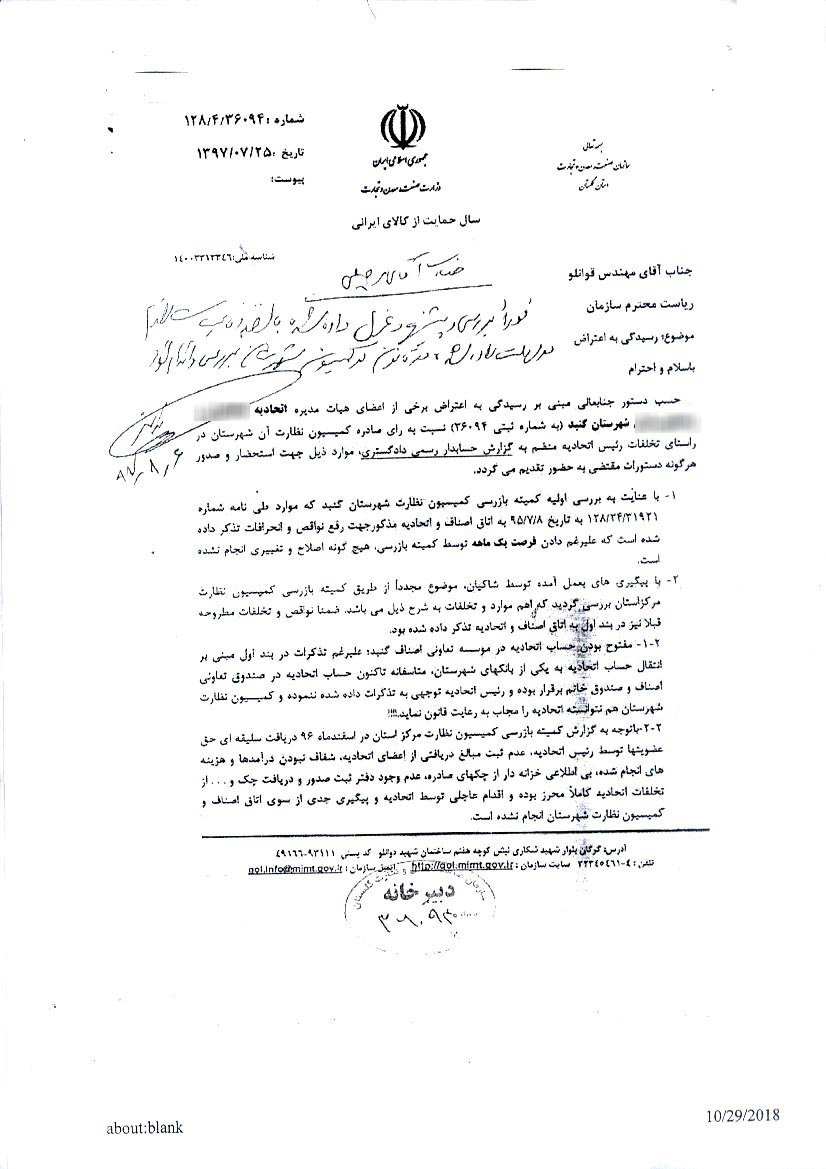 شماره : ۱۲۸/۴/۳۶۰۹۴
تاریخ : ۱۳۹۷/۰۷/۲۵
پیوست:
جمهوری اسلامی ایران
وزارت صنعت، معدن و تجارت
بسمه تعالی
سازمان صنعت، معدن و تجارت
استان گلستان
سال حمایت از کالای ایرانی
شناسه ملی: ۱۴۰۰۳۳۱۳۳۴۶
جناب آقای
جناب آقای مهندس قوانلو
ریاست محترم سازمان
موضوع: رسیدگی به اعتراض
باسلام و احترام
حسب دستور جنابعالی مبنی بر رسیدگی به اعتراض برخی از اعضای هیات مدیره اتحادیه
شهرستان گنبد (به شماره ثبتی ۳۶۰۹۴) نسبت به رای صادره کمیسیون نظارت آن شهرستان در
راستای تخلفات رئیس اتحادیه منضم به گزارش حسابدار رسمی دادگستری، موارد ذیل جهت استحضار و صدور
هرگونه دستورات مقتضی به حضور تقدیم می گردد.
۱- با عنایت به بررسی اولیه کمیته بازرسی کمیسیون نظارت شهرستان گنبد که موارد طی نامه شماره
۱۲۸/۲۴/۳۱۹۲۱ به تاریخ ۹۵/۷/۸ به اتاق اصناف و اتحادیه مذکورجهت رفع نواقص و انحرافات تذکر داده
شده است که علیرغم دادن فرصت یک ماهه توسط کمیته بازرسی، هیچ گونه اصلاح و تغییری انجام نشده
است.
۲- با پیگیری های بعمل آمده توسط شاکیان، موضوع مجدداً از طریق کمیته بازرسی کمیسیون نظارت
مرکزاستان بررسی گردید که اهم موارد و تخلفات به شرح ذیل می باشد. ضمنا نواقص و تخلفات مطروحه
قبلا نیز در بند اول به اتاق اصناف و اتحادیه تذکر داده شده بود.
۲-۱- مفتوح بودن حساب اتحادیه در موسسه تعاونی اصناف گنبد؛ علیرغم تذکرات در بند اول مبنی بر
انتقال حساب اتحادیه به یکی از بانکهای شهرستان، متاسفانه تاکنون حساب اتحادیه در صندوق تعاونی
اصناف و صندوق خاتم برقرار بوده و رئیس اتحادیه توجهی به تذکرات داده شده ننموده و کمیسیون نظارت
شهرستان هم نتوانسته اتحادیه را مجاب به رعایت قانون نماید.!!!!
۲-۲-باتوجه به گزارش کمیته بازرسی کمیسیون نظارت مرکز استان در اسفندماه ۹۶ دریافت سلیقه ای حق
عضویتها توسط رئیس اتحادیه، عدم ثبت مبالغ دریافتی از اعضای اتحادیه، شفاف نبودن درآمدها و هزینه
های انجام شده، بی اطلاعی خزانه دار از چکهای صادره، عدم وجود دفتر ثبت صدور و دریافت چک و . . . از
تخلفات اتحادیه کاملاً محرز بوده و اقدام عاجلی توسط اتحادیه و پیگیری جدی از سوی اتاق اصناف و
کمیسیون نظارت شهرستان انجام نشده است.
آدرس: گرگان بلوار شهید شکاری نبش کوچه هفتم ساختمان شهید دوانلو کد پستی ۹۳۱۱۱-۴۹۱۶۶
تلفن : ۴-۳۲۳۴۰۵۶۱ سایت سازمان : http://gol.mimt.gov.ir ایمیل سازمان : gol.info@mimt.gov.ir
دبیر خانه
about:blank
10/29/2018